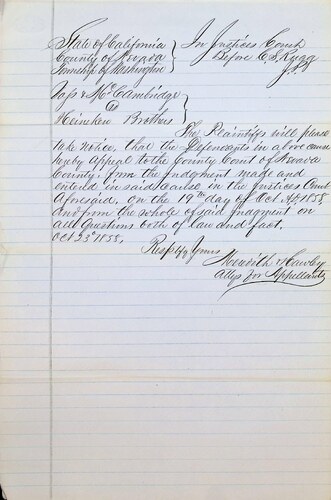 State of California } In Justices Court
County of Nevada } Before C. S. Rugg
Township of Washington }
Foss & McCambridge }
vs }
Heineken Brothers }
The Plaintiffs will please
take notice, that the Defendants in above cause
hereby appeal to the County Court of Nevada
County, from the Judgment made and
entered in said cause in the Justices Court
Aforesaid, on the 19th day of Oct. AD, 1858
and from the whole of said Judgment on
all questions both of law and fact.
Oct 23d 1858, Respty Yours
Meredith & Hawley
Attys for Appellants